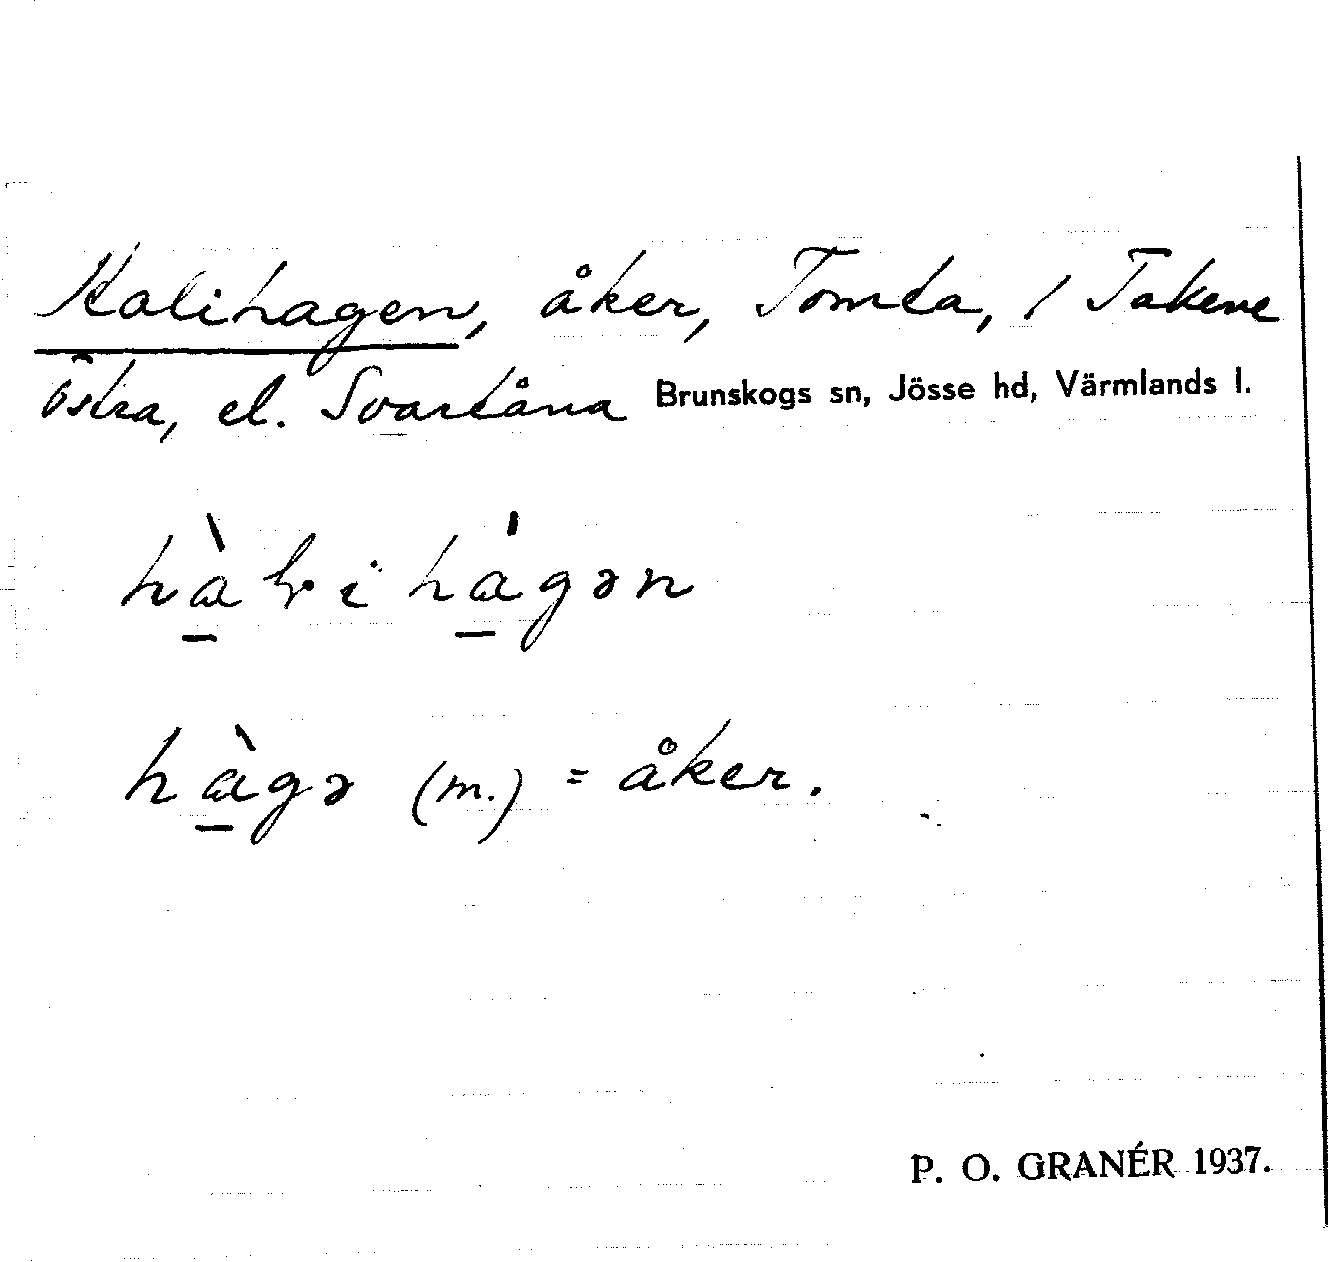 Halihagen, åker, Tomta, / Takene
Östra, el. Svartåna Brunskogs sn, Jösse hd, Värmlands l.
hàlihágən
hàgə (m.) = åker.
P. O. GRANÉR 1937.